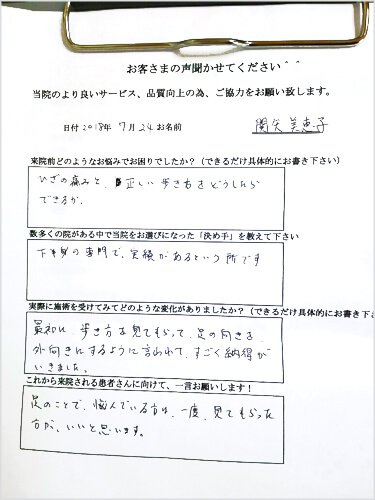 お客さまの声聞かせてください＾＾
当院のより良いサービス、品質向上の為、ご協力をお願い致します。
日付 2018年 7月 24 お名前 関矢 美恵子
来院前どのようなお悩みでお困りでしたか？（できるだけ具体的にお書き下さい）
ひざの痛みと、正しい歩き方をどうしたら
できるか。
数多くの院がある中で当院をお選びになった「決め手」を教えて下さい
下半身の専門で、実績があるという所です
実際に施術を受けてみてどのような変化がありましたか？（できるだけ具体的にお書き下さ
最初に、歩き方を見てもらって、足の向きを、
外向きにするように言われて、すごく納得が
いきました。
これから来院される患者さんに向けて、一言お願いします！
足のことで、悩んでいる方は、一度、見てもらった
方が、いいと思います。